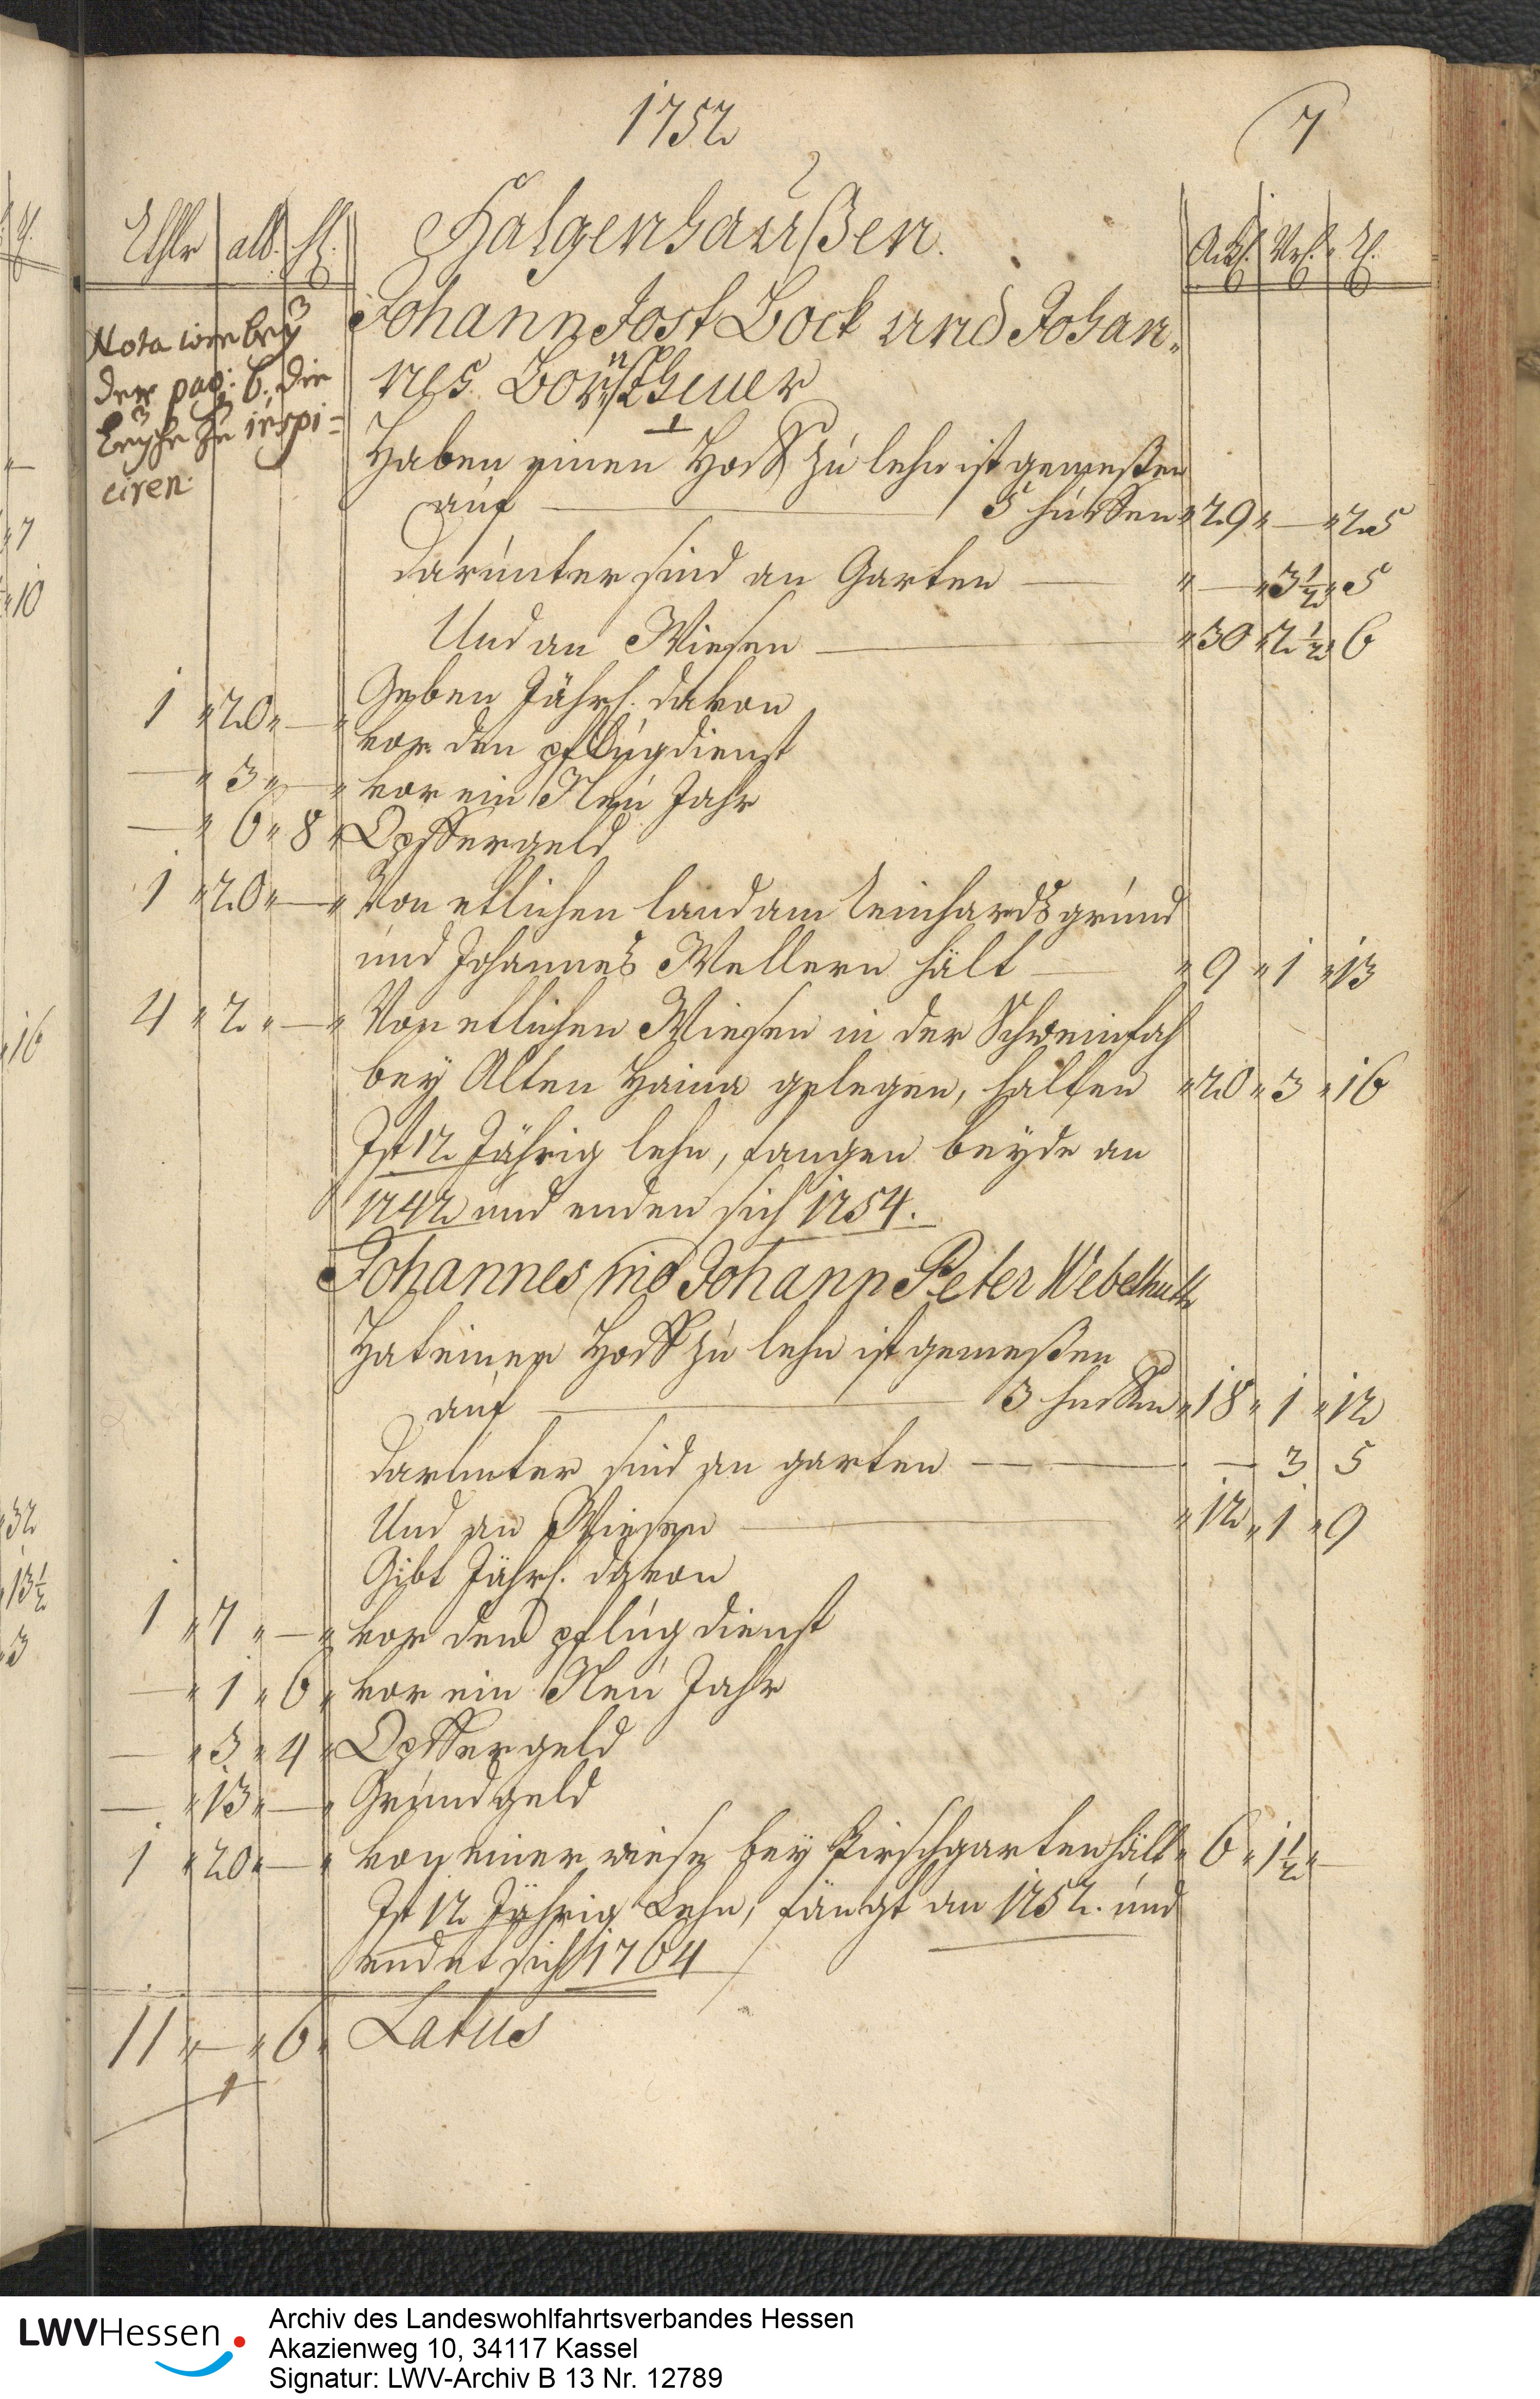 1752
7
Rthlr alb. hl.
Halgenhaußen.
Ack. Vrl. R.
Nota wie bey
der pag: 6. die
Leyhe zu inspi=
ciren.
Johann Jost Bock und Johan„
nes Bornscheuer
Haben einen Hoff zu lehn ist gemeßen
auf — 5 huffen „ 29 „ — „ 25
darunter sind an Garten — „ — „ 3½ „ 5
Und an Wiesen — „ 30 „ 2½ „ 6
Geben Jährl. davon
1 „ 20 „ — „ vor den pflugdienst
— „ 3 „ — „ vor ein Neu Jahr
— „ 6 „ 8 „ Opffergeld
1 „ 20 „ — „ Von etlichen land am Leinhardsgrund
und Johannes Wellern hält — „ 9 „ 1 „ 13
4 „ 2 „ — „ Von etlichen Wiesen in der
bey Alten Haina gelegen, halten „ 20 „ 3 „ 16
Ist 12 Jährig lehn, fangen beyde an
1742 und enden sich 1754.
Johannes und Johann Peter Webelhuth
Hat einen Hoff zu lehn ist gemeßen
auf — 3 huffen „ 18 „ 1 „ 12
darunter sind an garten — — 3 5
Und an Wiesen — „ 12 „ 1 „ 9
Gibt Jährl. davon
1 „ 7 „ — „ vor den pflug dienst
— „ 1 „ 6 „ vor ein Neu Jahr
— „ 3 „ 4 „ Opffergeld
— „ 13 „ — „ Grundgeld
1 „ 20 „ — „ von einer wiese bey Kirschgarten hält „ 6 „ 1½ „ —
Ist 12 Jährig Lehn, fängt an 1752. und
endet sich 1764
11 „ — „ 6 „ Latus
1
LWVHessen
Archiv des Landeswohlfahrtsverbandes Hessen
Akazienweg 10, 34117 Kassel
Signatur: LWV-Archiv B 13 Nr. 12789